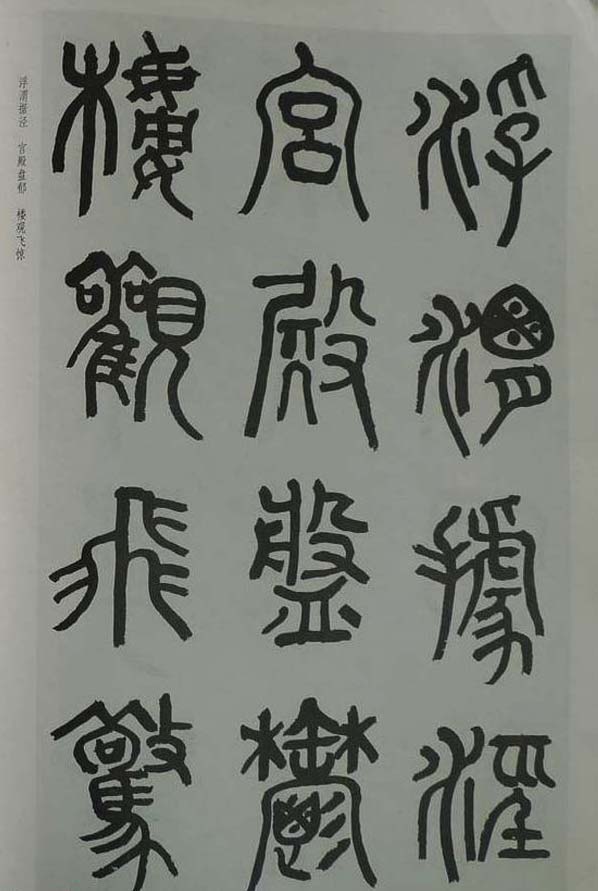 浮渭據涇
宮殿盤鬱
樓觀飛驚
浮渭据泾 宫殿盘郁 楼观飞惊